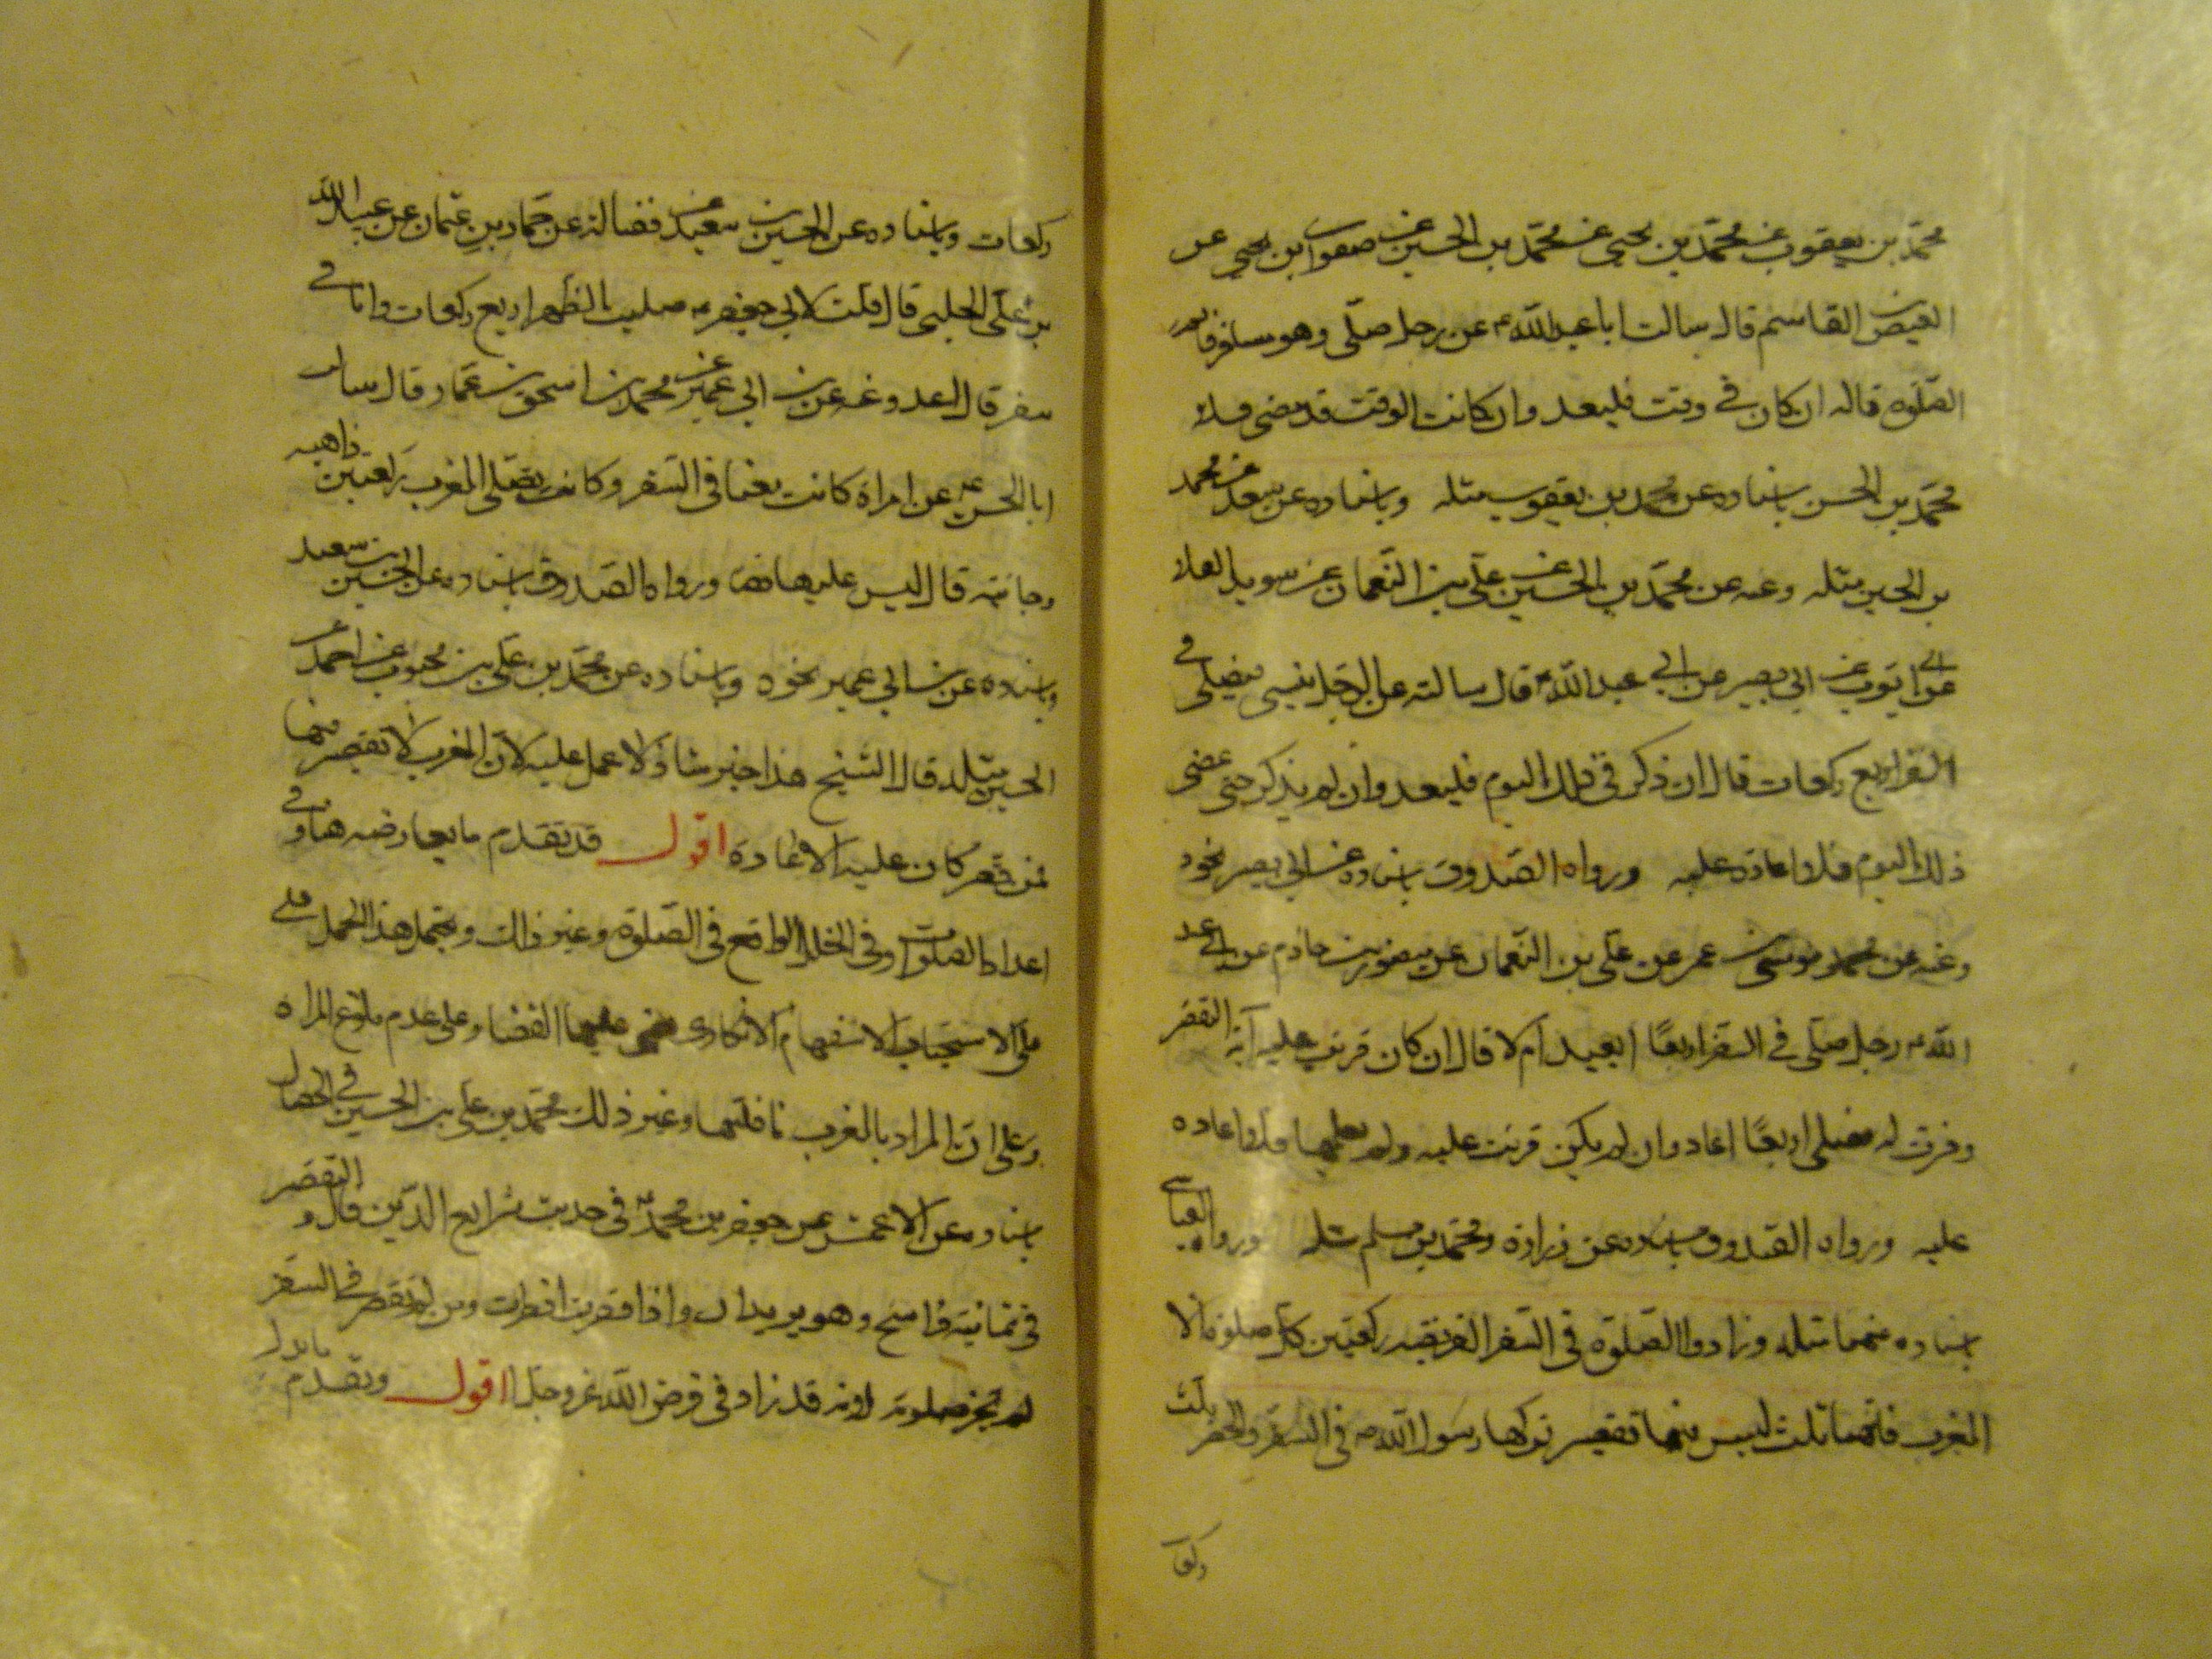 محمد بن يعقوب عن محمد بن يحيى عن محمد بن الحسين عن صفوان بن يحيى عن
العيص بن القاسم قال سالت ابا عبد الله ع عن رجل صلى وهو مسافر فاتم
الصلوة قال ان كان في وقت فليعد وان كانت الوقت قد مضى فلا
محمد بن الحسن باسناده عن محمد بن يعقوب مثله وباسناده عن سعد عن محمد
بن الحسين مثله وعنه عن محمد بن الحسين عن علي بن النعمان عن سويد القلا
عن ابي ايوب عن ابي بصير عن ابي عبد الله ع قال سالته عن الرجل ينسى فيصلي في
السفر اربع ركعات قال ان ذكر في ذلك اليوم فليعد وان لم يذكر حتى يمضى
ذلك اليوم فلا اعادة عليه ورواه الصدوق باسناده عن ابي بصير نحوه
وعنه عن محمد موسى بن عمر عن علي بن النعمان عن منصور بن حازم عن ابي عبد
الله ع رجل صلى في السفر اربعا ايعيد ام لا قال ان كان قرئت عليه آية التقصر
وفسرت له فصلى اربعا اعاد وان لم يكن قرئت عليه ولم يعلمها فلا اعاده
عليه ورواه الصدوق باسناده عن زرارة ومحمد بن مسلم مثله ورواه العياشي
باسناده عنهما مثله وزادوا الصلوة في السفر الفريضه ركعتين كل صلوة الا
المغرب فانها ثلث ليس فيها تقصير تركها رسول الله ص في السفر والحضر ثلث
ركعا
ركعات وباسناده عن الحسين بن سعيد عن فضالة عن حماد بن عثمان عن عبيد الله
بن علي الحلبي قال قلت لابي جعفر ع صليت الظهر اربع ركعات وانا في
سفر قال اعد وعنه عن بن ابي عمير عن محمد بن اسحق بن عمار قال سالت
ابا الحسن ع عن امراة كانت معنا في السفر وكانت تصلى المغرب ركعتين ذاهبه
وجائيه قال ليس عليها قضا ورواه الصدوق باسناده عن الحسين بن سعيد
وباسناده عن بن ابي عمير نحوه وباسناده عن محمد بن علي بن محبوب عن احمد عن
الحسين مثله قال الشيخ هذا خبر شاذ لا عمل عليه لان المغرب لا تقصر فيها
فمن قصر كان عليه الاعادة اقول قد تقدم ما يعارضه هنا وفي
اعداد الصلوات وفي الخلل الواقع في الصلوة وغير ذلك ويحتمل هذا الحمل على
على الاستحباب الاستفهام الانكارى عليها القضا وعلى عدم بلوغ المراه
وعلى ان المراد بالمغرب نافلتها وغير ذلك محمد بن علي بن الحسين في الخصال
باسناده عن الاعمش عن جعفر بن محمد ع في حديث شرايع الدين قال و التقصر
في ثمانية فراسخ وهو بريدان واذا قصرت افطرت ومن لم يقصر في السفر
لم تجز صلوته لانه قد زاد في فرض الله عز وجل اقول وتقدم ما يدل